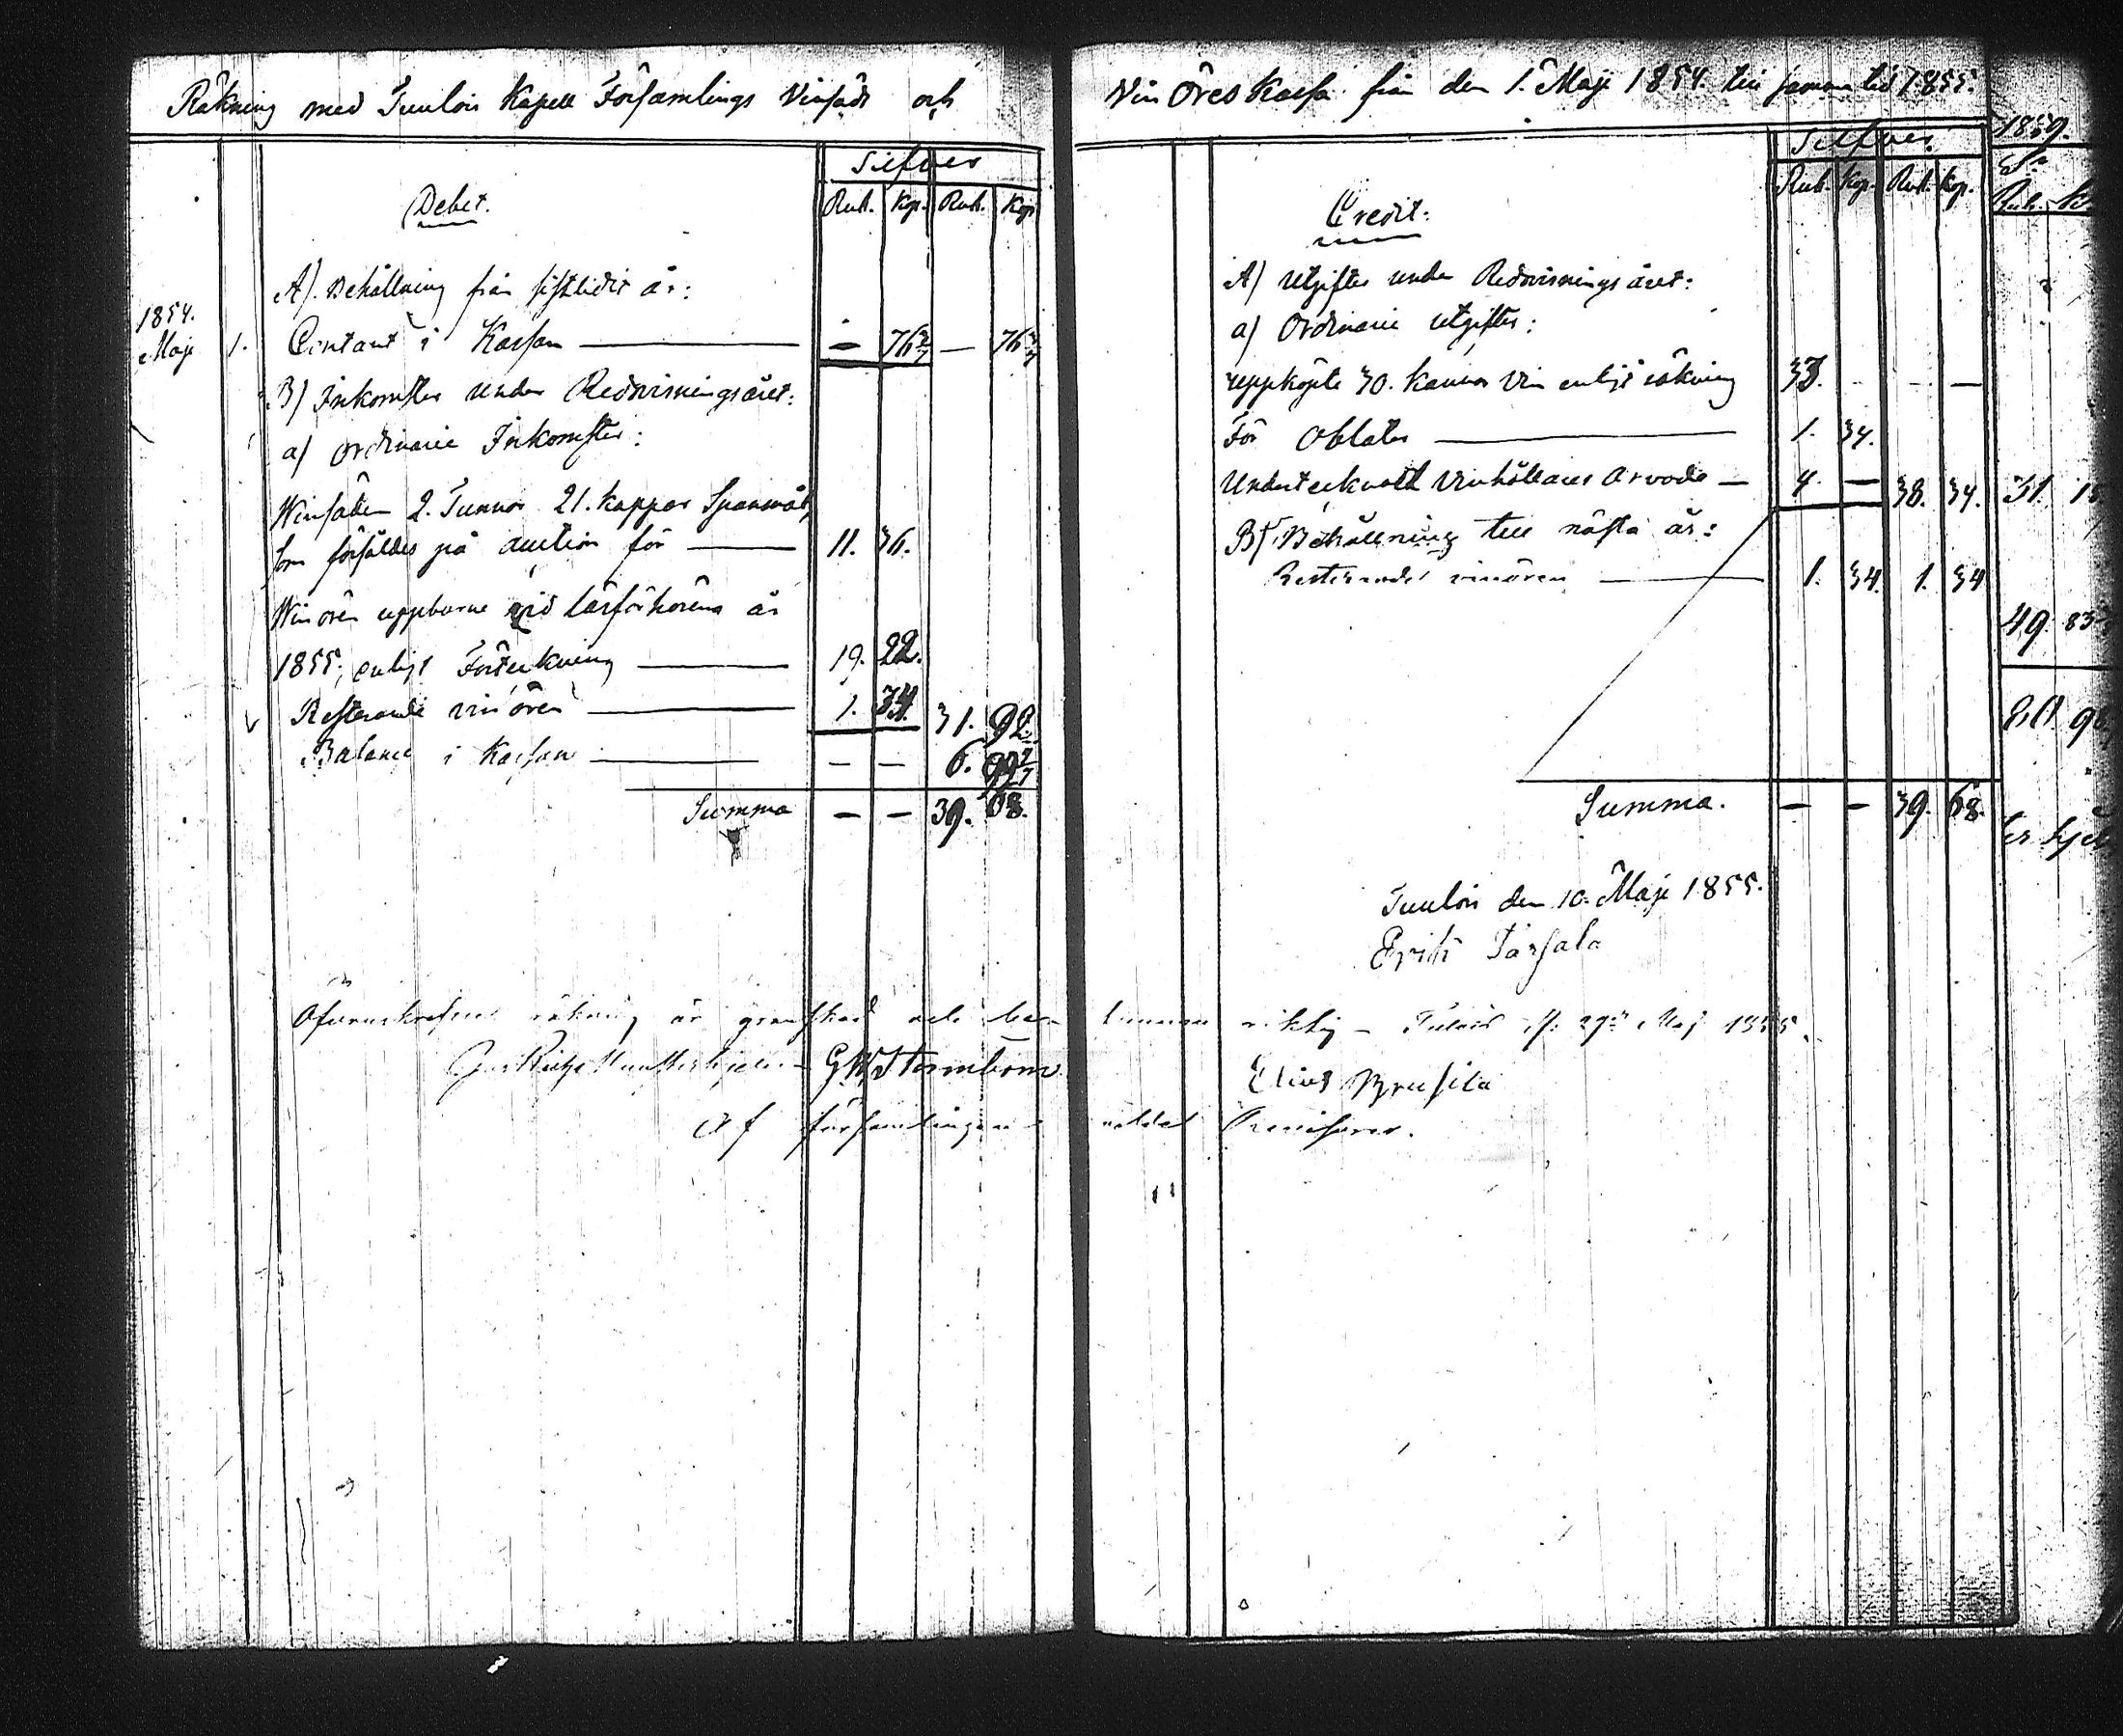 Räkning med Tuulois Kapell Församlings Vinsäds och
Silfver
Debet.
Rub. Kop. Rub. Kop
A). Behållning från sistlidit år:
1854.
Maji 1. Contant i Kassan — 76 2/7 — 76 2/7
B) Inkomster under Redovisningsåret:
a) Ordinarie Inkomster:
Winsäden 2. Tunnor 21. kappar Spanmål,
som försåldes på auction för 11. 36.
Winören uppburne vid läsförhören år
1855, enligt Förteckning 19. 22.
Resterande vinören 1. 34. 31. 92.
Balance i Kassan — — 6. 99 5/7
Summa — — 39. 68.
Vin Öres Kassa från den 1. Maji 1854. till samma tid 1855.
Silfver.
Rub. Kop. Rub. Kop.
Credit:
A) Utgifter under Redovisningsåret:
a) Ordinarie utgifter:
uppköpte 30. kannor Vin enligt räkning 33. - - —
För Oblater 1. 34.
Undertecknad Vinhållares Arvode — 4. — 38. 34.
B) Behållning till nästa år:
Resterande vinören 1. 34. 1. 34
Summa. — — 39. 68.
Tuulois den 10. Maji 1855.
Erik Tarsala
Ofvanskrefne räkning är granskad och be- funnen riktig – Tulois d. 29de Maj 1855.
G.W. Stormbom Elias Brusila
Af församlingen valda Revisorer.
1859.
Sr
Rub. K
31. 1
49. 83
80 9